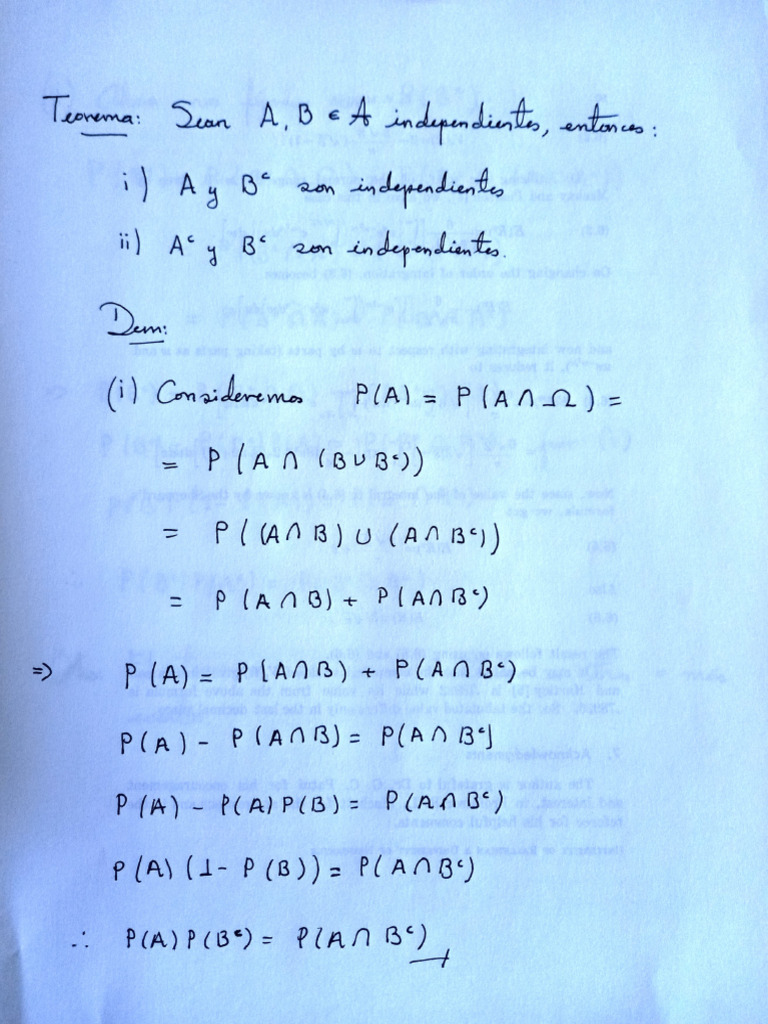 Teorema: Sean A, B ∈ A independientes, entonces:
i) A y Bᶜ son independientes
ii) Aᶜ y Bᶜ son independientes.
Dem:
(i) Consideremos P(A) = P(A ∩ Ω) =
= P(A ∩ (B ∪ Bᶜ))
= P((A ∩ B) ∪ (A ∩ Bᶜ))
= P(A ∩ B) + P(A ∩ Bᶜ)
⇒ P(A) = P(A ∩ B) + P(A ∩ Bᶜ)
P(A) - P(A ∩ B) = P(A ∩ Bᶜ)
P(A) - P(A)P(B) = P(A ∩ Bᶜ)
P(A)(1 - P(B)) = P(A ∩ Bᶜ)
∴ P(A)P(Bᶜ) = P(A ∩ Bᶜ)